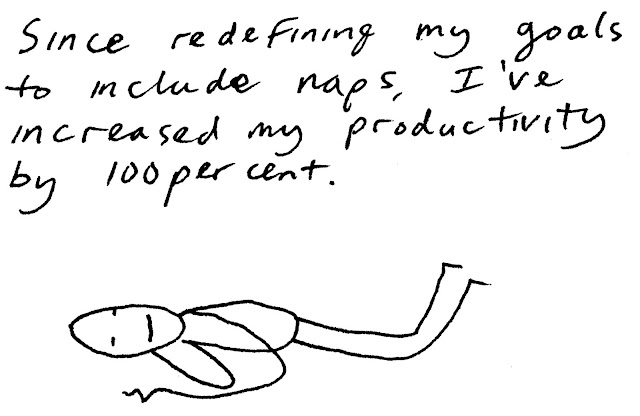 Since redefining my goals
to include naps, I've
increased my productivity
by 100 per cent.